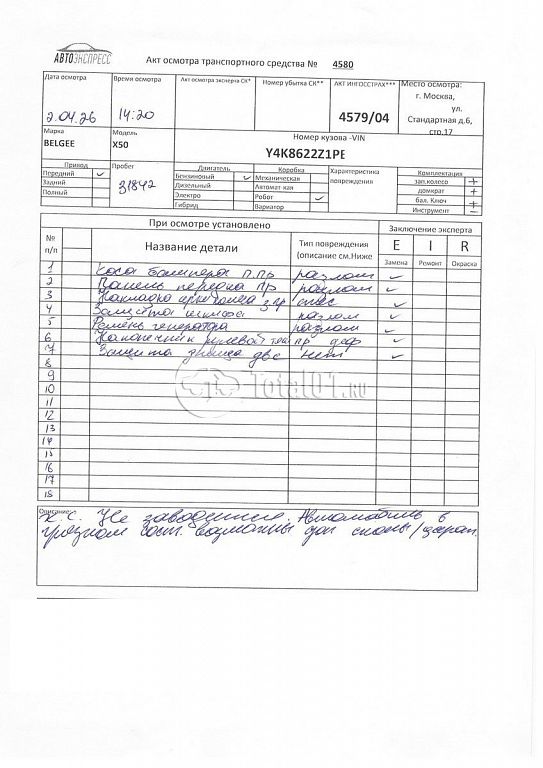 АВТОЭКСПРЕСС
Акт осмотра транспортного средства № 4580
Дата осмотра
2.04.26
Время осмотра
14:20
Акт осмотра эксперта СК*
Номер убытка СК**
АКТ ИНГОССТРАХ***
4579/04
Место осмотра:
г. Москва,
ул.
Стандартная д.6,
стр.17
Марка
BELGEE
Модель
X50
Номер кузова -VIN
Y4K8622Z1PE
Привод
Передний ✓
Задний
Полный
Пробег
31842
Двигатель
Бензиновый ✓
Дизельный
Электро
Гибрид
Коробка
Механическая
Автомат кая
Робот ✓
Вариатор
Характеристика
повреждения
Комплектация
зап.колесо +
домкрат +
бал. Ключ +
Инструмент -
При осмотре установлено
Заключение эксперта
№
п/п
Название детали
Тип повреждения
(описание см.Ниже
E I R
Замена Ремонт Окраска
1 бампера п.пр разлом ✓
2 Панель передка пр разлом ✓
3 Накладка арки з пр ✓
4 Защита разлом ✓
5 Ремень генератора разлом ✓
6 Наконечник рулевой тяги пр деф ✓
7 Защита днища две нет ✓
8
9
10
11
12
13
14
15
16
17
18
Total01.RU
Описание:
К.С. Не заводится. Автомобиль в
грязном сост. возможны доп сколы/царап.